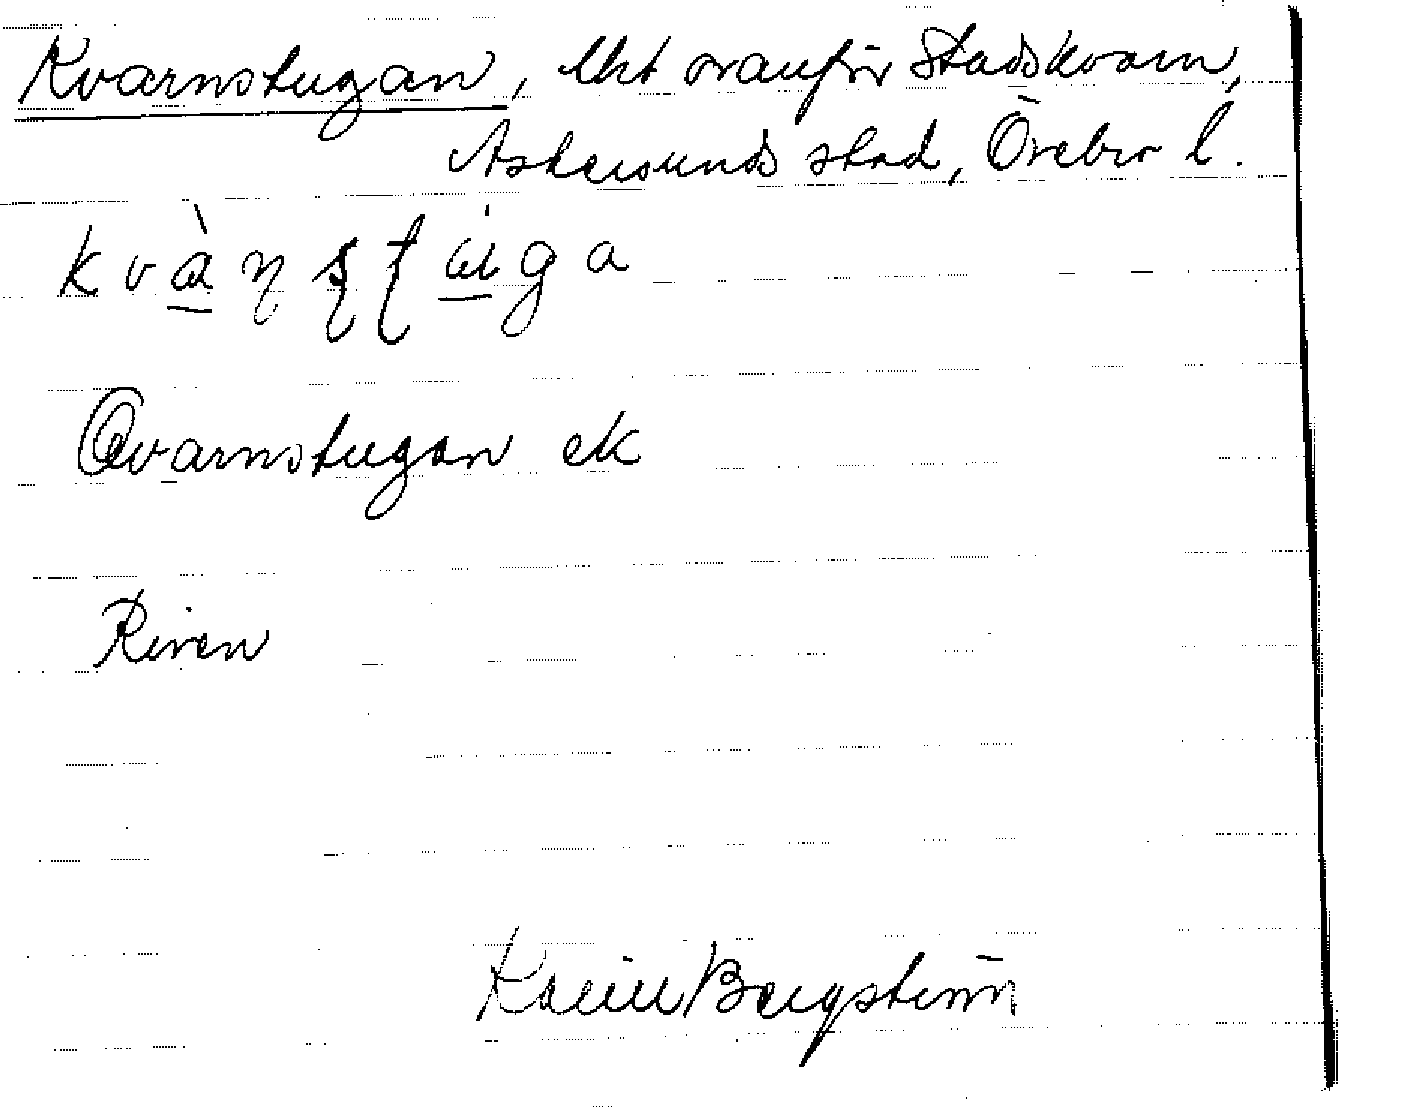 Kvarnstugan, lht ovanför Stadskvarn,
Askersunds stad, Örebro l.
Qvarnstugan ek
Riven
Karin Bergström